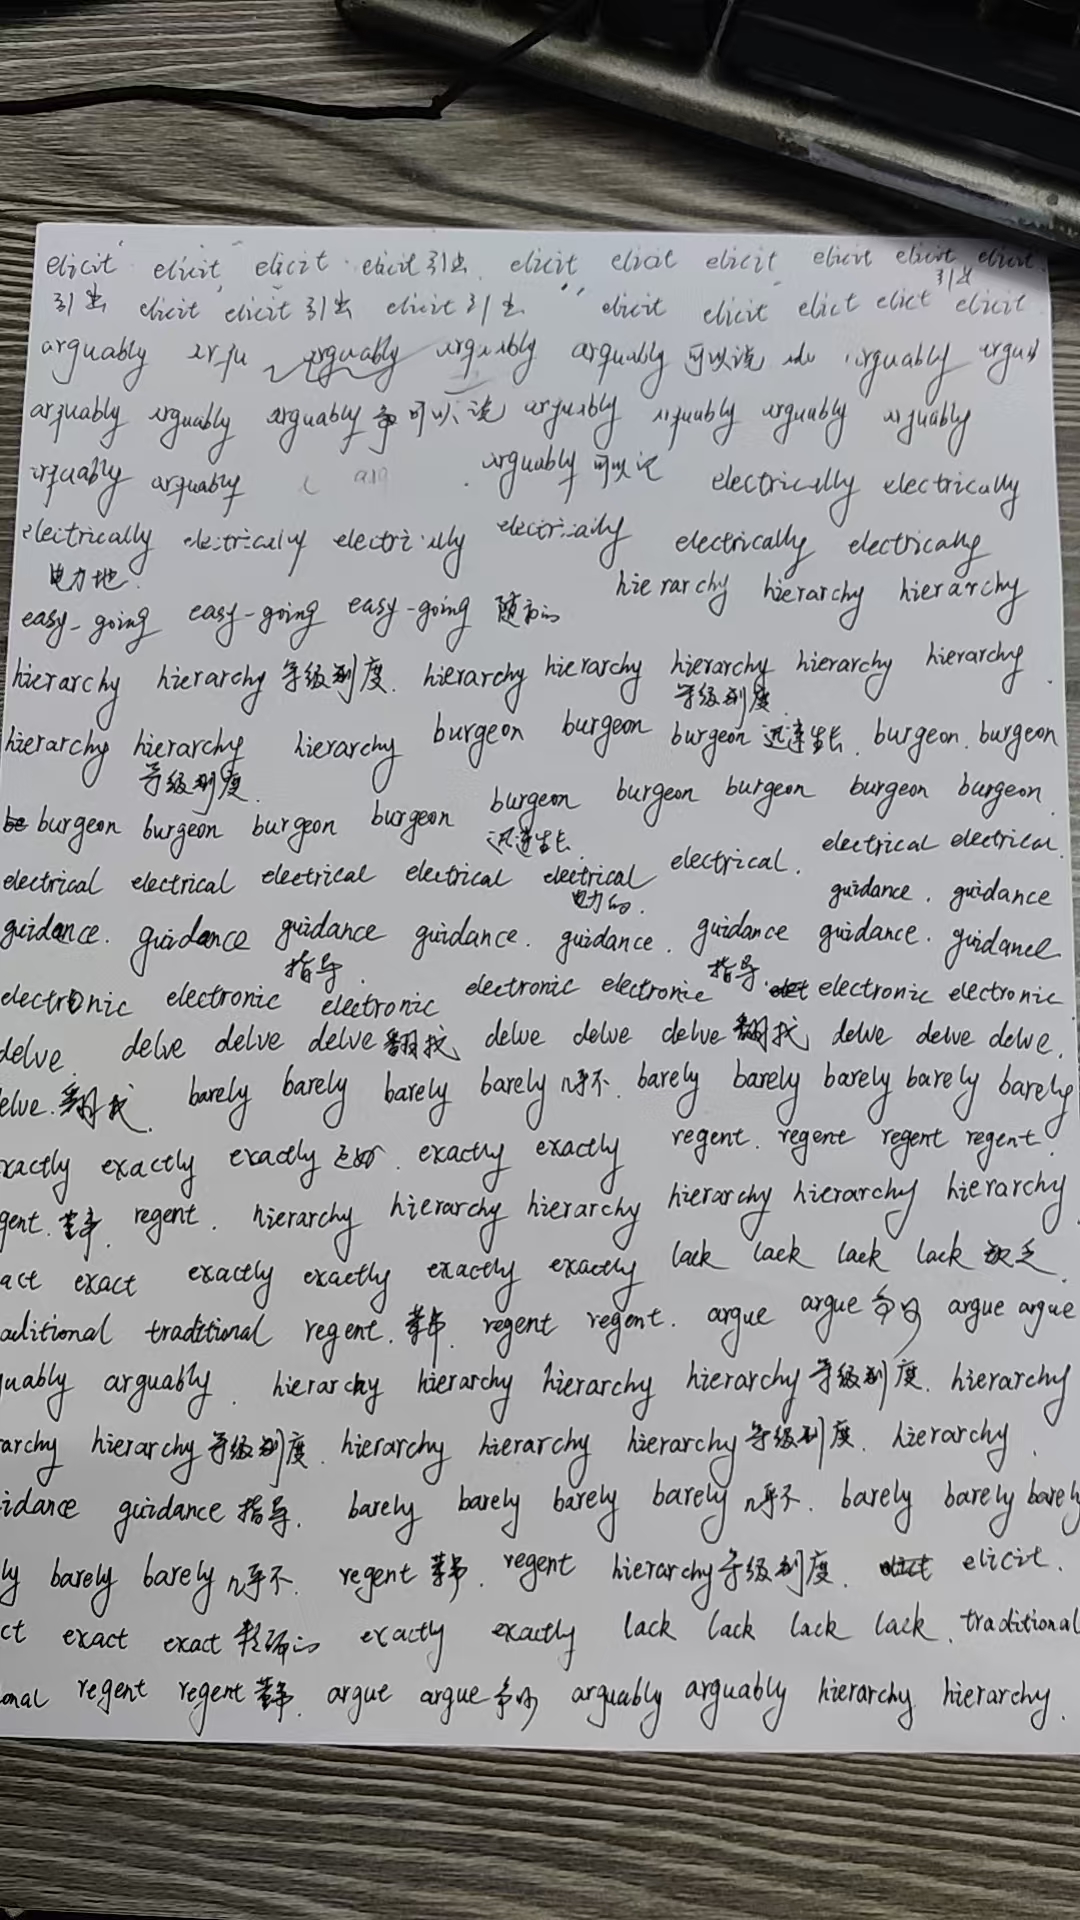 elicit elicit elicit elicit 引出 elicit elicit elicit elicit elicit elicit
引出
引出 elicit elicit 引出 elicit 引出 elicit elicit elict elict elicit
arguably arguably arguably arguably 可以说 arguably
arguably arguably arguably 可以说 arguably arguably arguably arguably
arguably arguably arguably 可以 electrically electrically
electrically electrically electrically electrically electrically electrically
电力地
easy-going easy-going easy-going 随和的 hierarchy hierarchy hierarchy
hierarchy hierarchy 等级制度. hierarchy hierarchy hierarchy hierarchy hierarchy.
等级制度
hierarchy hierarchy hierarchy burgeon burgeon burgeon 迅速生长. burgeon. burgeon
等级制度.
burgeon burgeon burgeon burgeon burgeon burgeon burgeon burgeon burgeon.
迅速生长.
electrical electrical electrical electrical electrical electrical. electrical electrical.
电力的. guidance. guidance
guidance. guidance guidance guidance. guidance. guidance guidance. guidance
指导. 指导.
electronic electronic electronic electronic electronic electronic electronic
delve. delve delve delve 翻找 delve delve delve 翻找 delve delve delve.
elve. 翻找. barely barely barely barely 几乎不. barely barely barely barely barely
xactly exactly exactly 正好. exactly exactly regent. regent regent regent.
gent. regent. hierarchy hierarchy hierarchy hierarchy hierarchy hierarchy
act exact exactly exactly exactly exactly lack lack lack lack 缺乏.
aditional traditional regent. regent regent. argue argue 争吵 argue argue
uably arguably. hierarchy hierarchy hierarchy hierarchy 等级制度. hierarchy
archy hierarchy 等级制度. hierarchy hierarchy hierarchy 等级制度. hierarchy.
idance guidance 指导. barely barely barely barely 几乎不. barely barely barely
ly barely barely 几乎不. regent regent hierarchy 等级制度. elicit.
ct exact exact 精确的 exactly exactly lack lack lack lack. traditional
onal regent regent argue argue 争吵 arguably arguably hierarchy hierarchy.